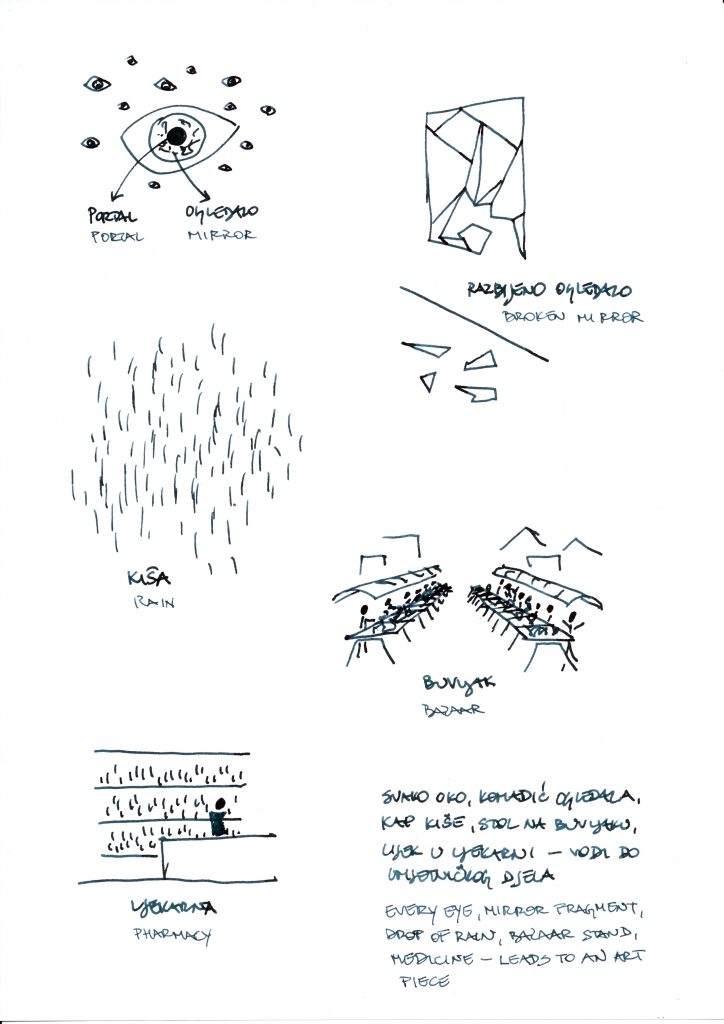 PORTAL
PORTAL
OGLEDALO
MIRROR
RAZBIJENO OGLEDALO
BROKEN MIRROR
KIŠA
RAIN
BUVLJAK
BAZAAR
LJEKARNA
PHARMACY
SVAKO OKO, KOMADIĆ OGLEDALA,
KAP KIŠE, STOL NA BUVLJAKU,
LIJEK U LJEKARNI – VODI DO
UMJETNIČKOG DJELA
EVERY EYE, MIRROR FRAGMENT,
DROP OF RAIN, BAZAAR STAND,
MEDICINE – LEADS TO AN ART
PIECE